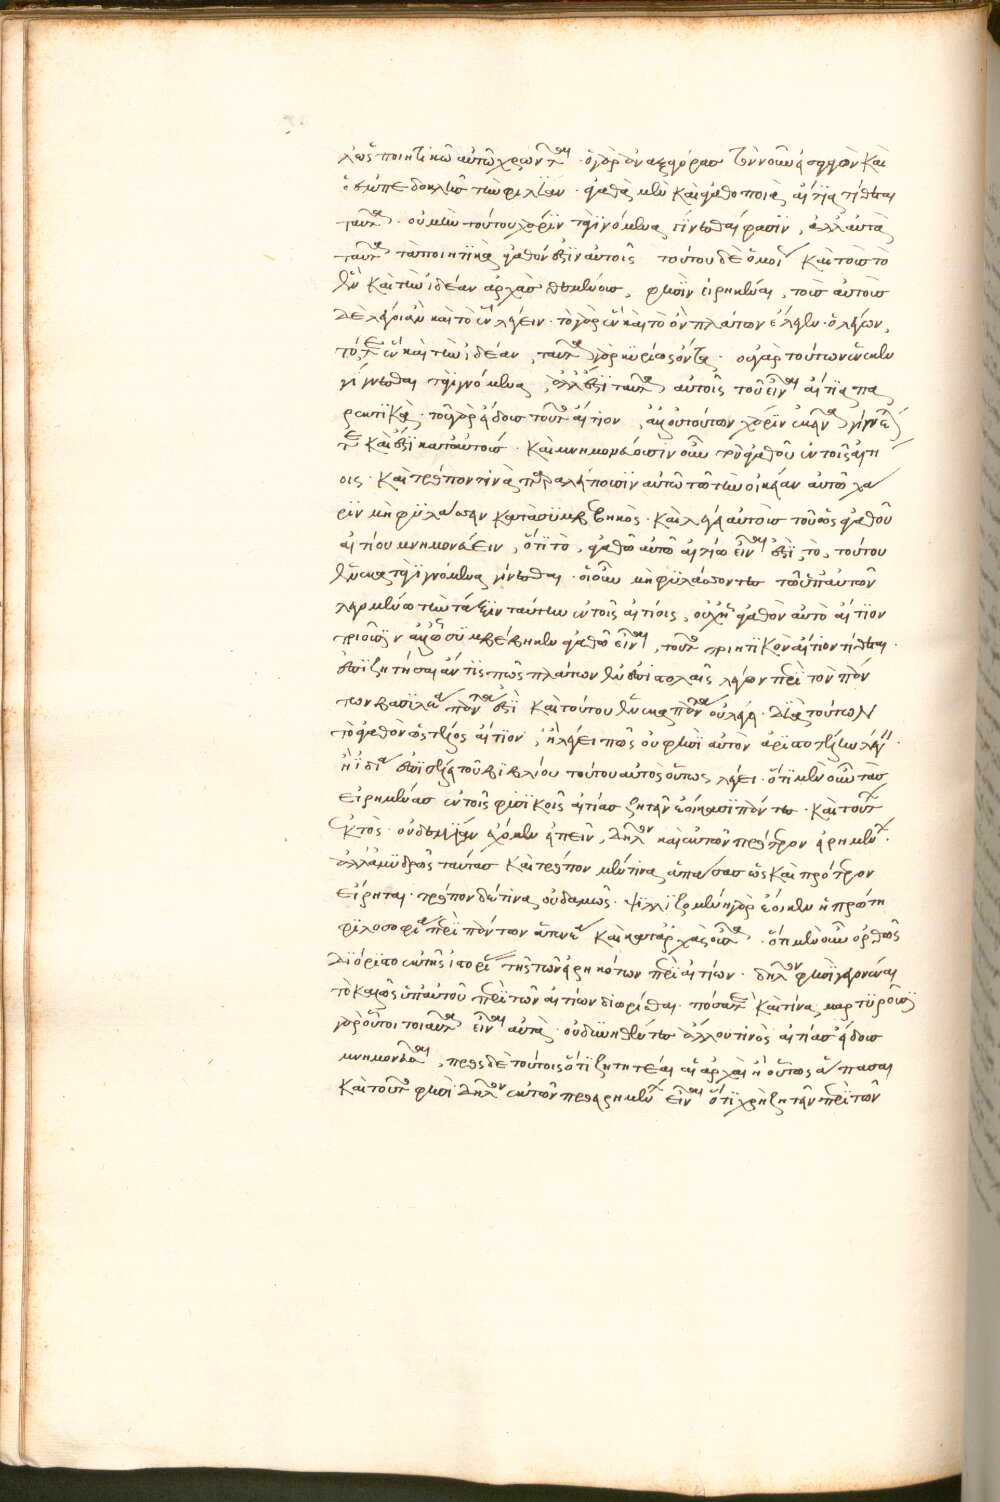 λως ποιητικῶ αὐτῶ χρῶνται · ὁ γὰρ ἀναξαγόρας τὸν νοῦν εἰσάγων καὶ
ὁ ἐμπεδοκλῆς τὴν φιλίαν · ἀγαθὰ μὲν καὶ ἀγαθοποιὰ αἴτια τίθεται
ταῦτα · οὐ μὴν τούτου χάριν τὰ γινόμενα γίνεσθαι φασὶν, ἀλλ' αὐτὰ
ταῦτα τὰ ποιητικὰ ἀγαθόν ἐστιν αὐτοῖς τούτου δὲ ὅμοι καὶ τοὺς τὸ
ἓν καὶ τὴν ἰδέαν ἀρχὰς θεμένους, φησὶν εἰρηκέναι, τοὺς αὐτοὺς
δὲ λέγοι ἂν καὶ τὸ ἓν λέγειν · τὸ γὰρ ἓν καὶ τὸ ὂν πλάτων ἔλεγεν · ὁ λέγων,
τό τε ἓν καὶ τὴν ἰδέαν, ταῦτα γὰρ κυρίως ὄντα · οὐ γὰρ τούτων ἕνεκεν
γίγνεσθαι τὰ γινόμενα, ἀλλ' ἔστι ταῦτα αὐτοῖς τοῦ εἶναι αἴτια πα
ρεκτικὰ · τὸ γὰρ εἶδος τούτου αἴτιον, ἀλλ' οὐ τούτων χάριν ἐκεῖνα γίγνε
ται καὶ ἔστι κατ' αὐτούς · καὶ μνημονεύουσιν οὖν τοῦ ἀγαθοῦ ἐν τοῖς αἰτί
οις · καὶ τρόπον τινὰ παραλείπουσιν αὐτῶ τὸ τὴν οἰκείαν αὐτῶ χώ
ραν μὴ φυλάσσειν κατὰ συμβεβηκός · καὶ λέγει αὐτοὺς τοῦ ὡς ἀγαθοῦ
αἰτίου μνημονεύειν, ὅτι τὸ, ἀγαθῶ αὐτῶ αἰτίω εἶναι ἐστὶ τὸ, τούτου
ἕνεκα τὰ γινόμενα γίνεσθαι · οἱ οὖν μὴ φυλάσσοντες τῶ ὑπ' αὐτῶν
λεγομένω τὴν τάξιν ταύτην ἐν τοῖς αἰτίοις, οὐχ ᾗ ἀγαθὸν αὐτὸ αἴτιον
ποιοῦσιν ἀλλ' ᾧ συμβέβηκεν ἀγαθῶ εἶναι, τοῦτο ποιητικὸν αἴτιον τίθεται ·
ἐπιζητήσαι ἄν τις πῶς πλάτων ἐν ἐπιστολαῖς λέγων περὶ τὸν πάν
των βασιλέα πάντα ἐστὶ καὶ τούτου ἕνεκα πάντα οὐ λέγει · διὰ τούτων
τὸ ἀγαθὸν ὡς τέλος αἴτιον, ἢ λέγει πῶς οὔ φησι αὐτὸν ἀριστοτέλην λέγειν ·
ἢ ἰδία ἐπὶ τέλει τοῦ βιβλίου τούτου αὐτὸς οὕτως λέγει · ὅτι μὲν οὖν τὰς
εἰρημένας ἐν τοῖς φυσικοῖς αἰτίας ζητεῖν ἐοίκασι πάντες · καὶ τούτων
ἐκτὸς · οὐδεμίαν ἔχομεν εἰπεῖν, δῆλον καὶ ἐκ τῶν πρότερον εἰρημένων ·
ἀλλ' ἀμυδρῶς ταύτας καὶ τρόπον μέν τινα ἅπασας ὡς καὶ πρότερον
εἴρηται · τρόπον δέ τινα οὐδαμῶς · ψελλιζομένη γὰρ ἔοικεν ἡ πρώτη
φιλοσοφία περὶ πάντων ἅτε νέα καὶ κατ' ἀρχὰς οὖσα · ὅτι μὲν οὖν ὀρθῶς
διώριστο ἐκ τῆς ἱστορίας τῆς τῶν εἰρηκότων περὶ αἰτίων · δῆλον φησὶ γεγονέναι
τὸ καλῶς ὑπ' αὐτοῦ περὶ τῶν αἰτίων διωρίσθαι · πόσα τε καὶ τίνα · μαρτυροῦσι
γὰρ οὗτοι τοιαῦτα εἶναι αὐτὰ · οὐ δυνηθέντες ἄλλου τινὸς αἰτίας εἴδους
μνημονεῦσαι, πρὸς δὲ τούτοις ὅτι ζητητέαι αἱ ἀρχαὶ ἢ οὕτως ἅπασαι
καὶ τοῦτο φησὶ δῆλον ἐκ τῶν προειρημένων εἶναι ὅτι χρὴ ζητεῖν περὶ τῶν